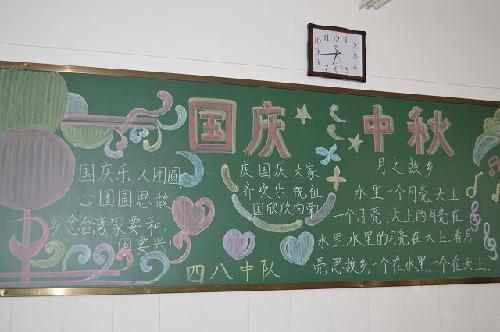 国庆 中秋
国庆乐,人团圆
心团圆思故
乡,念台湾家要和,
国要兴
庆国庆大家
齐欢乐祝祖
国欣欣向荣
月之故乡
水里一个月亮,天上
一个月亮,天上的月亮在
水里,水里的月亮在天上,看月
亮思故乡,一个在水里,一个在天上.
四八中队